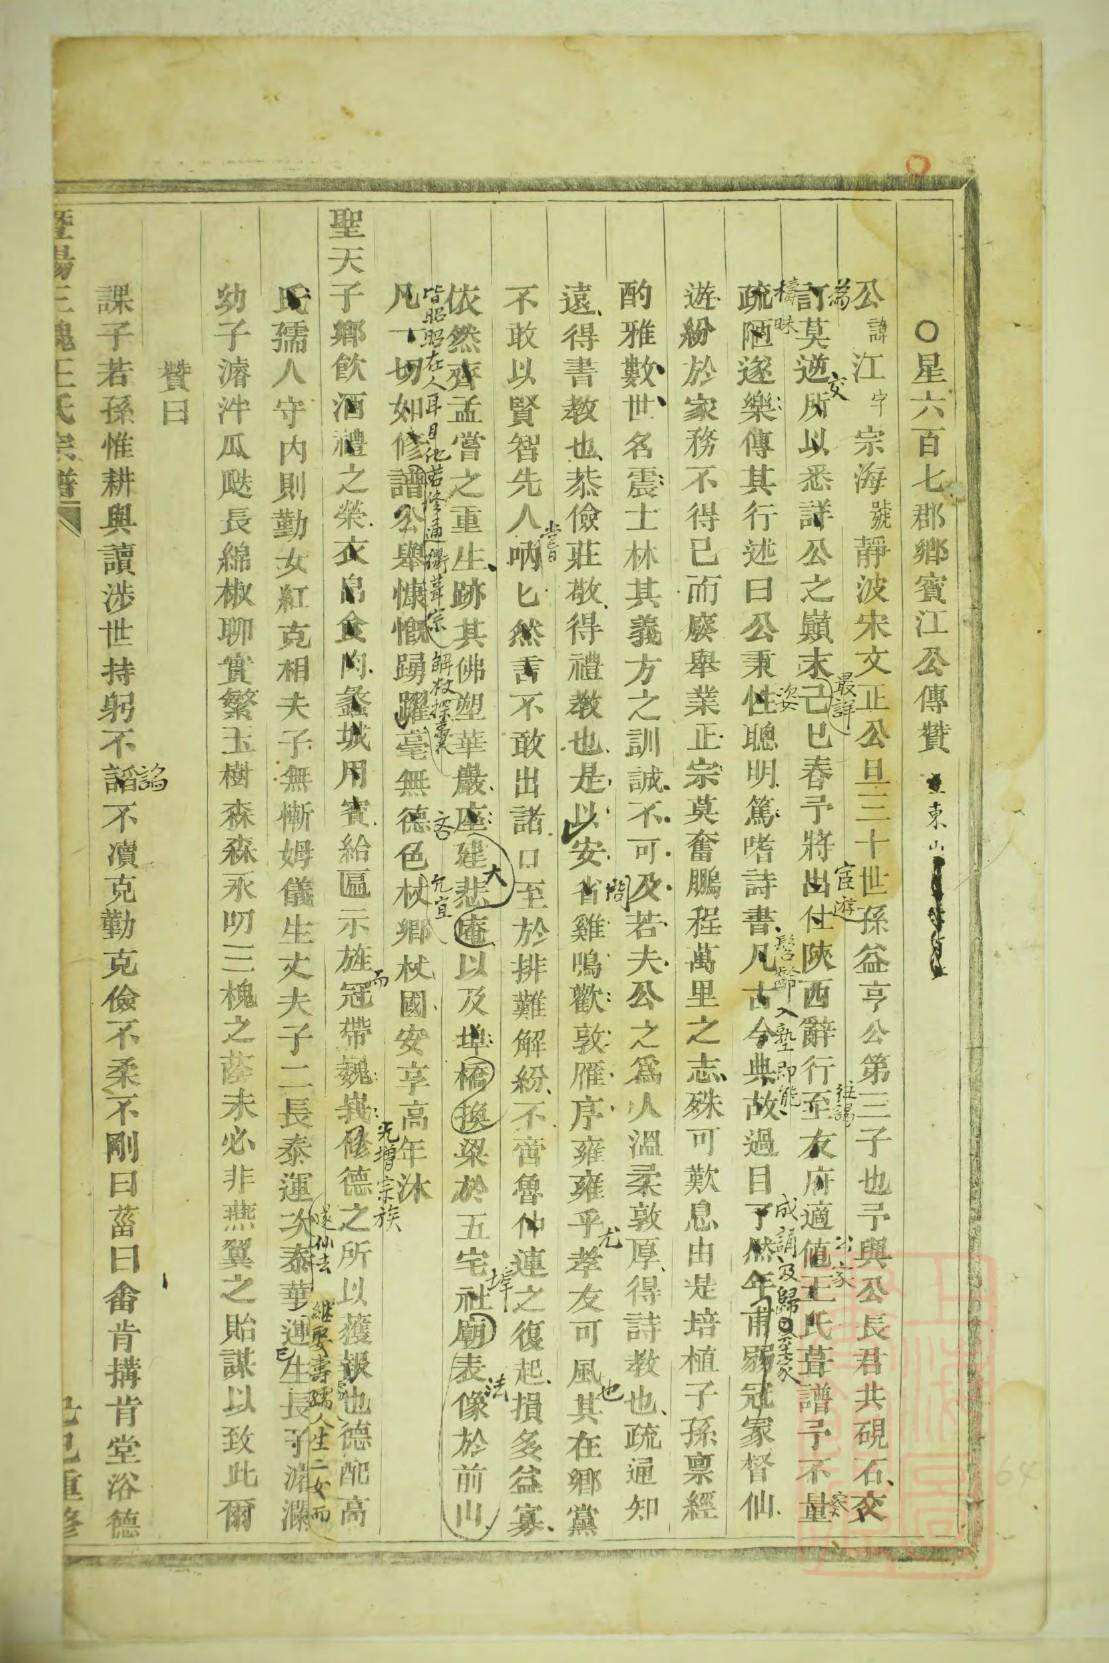 ○星六百七郡鄉賓江公傳贊
公諱江字宗海號靜波宋文正公旦三十世孫益亨公第三子也予與公長君共硯石交
訂莫逆所以悉詳公之巔末己巳春予將出仕陝西辭行至友府適値王氏葺譜予不量
疏陋遂樂傳其行述曰公秉性聰明篤嗜詩書凡古今典故過目了然年甫弱冠家督仙
遊紛於家務不得已而廢舉業正宗莫奮鵬程萬里之志殊可歎息由是培植子孫稟經
酌雅數世名震士林其義方之訓誠不可及若夫公之爲人溫柔敦厚得詩教也疏通知
遠得書教也恭儉莊敬得禮教也是以安省雞鳴歡敦雁序雍雍乎孝友可風其在鄉黨
不敢以賢智先人吶匕然言不敢出諸口至於排難解紛不啻魯仲連之復起損多益寡
依然齊孟嘗之重生跡其佛塑華嚴座建悲庵以及埠橋換梁於五宅社廟表像於前山
凡一切如修譜公舉慷慨踴躍毫無德色杖鄉杖國安享高年沐
聖天子鄉飲酒禮之榮衣帛食肉蠡城用賓給匾示旌冠帶巍峩修德之所以獲報也德配高
氏孺人守內則勤女紅克相夫子無慚姆儀生丈夫子二長泰運次泰華運生長子濬瀾
幼子濬泮瓜瓞長綿椒聊實繁玉樹森森丞叨三槐之蔭未必非燕翼之貽謀以致此爾
贊曰
課子若孫惟耕與讀涉世持躬不謟不瀆克勤克儉不柔不剛曰菑曰畬肯搆肯堂浴德
暨陽三槐王氏宗譜
己巳重修
為
交
最詳
宦遊
往謁
公家
檮昧
姿
髫齡入塾即能
成誦及歸
嘗
大
尤
也
埠
法
皆昭昭在人耳目他若修通衢葺宗
解杖探囊
吝
允宜
而
光增宗族
遂仙去
繼娶壽孺人生二女而
諂